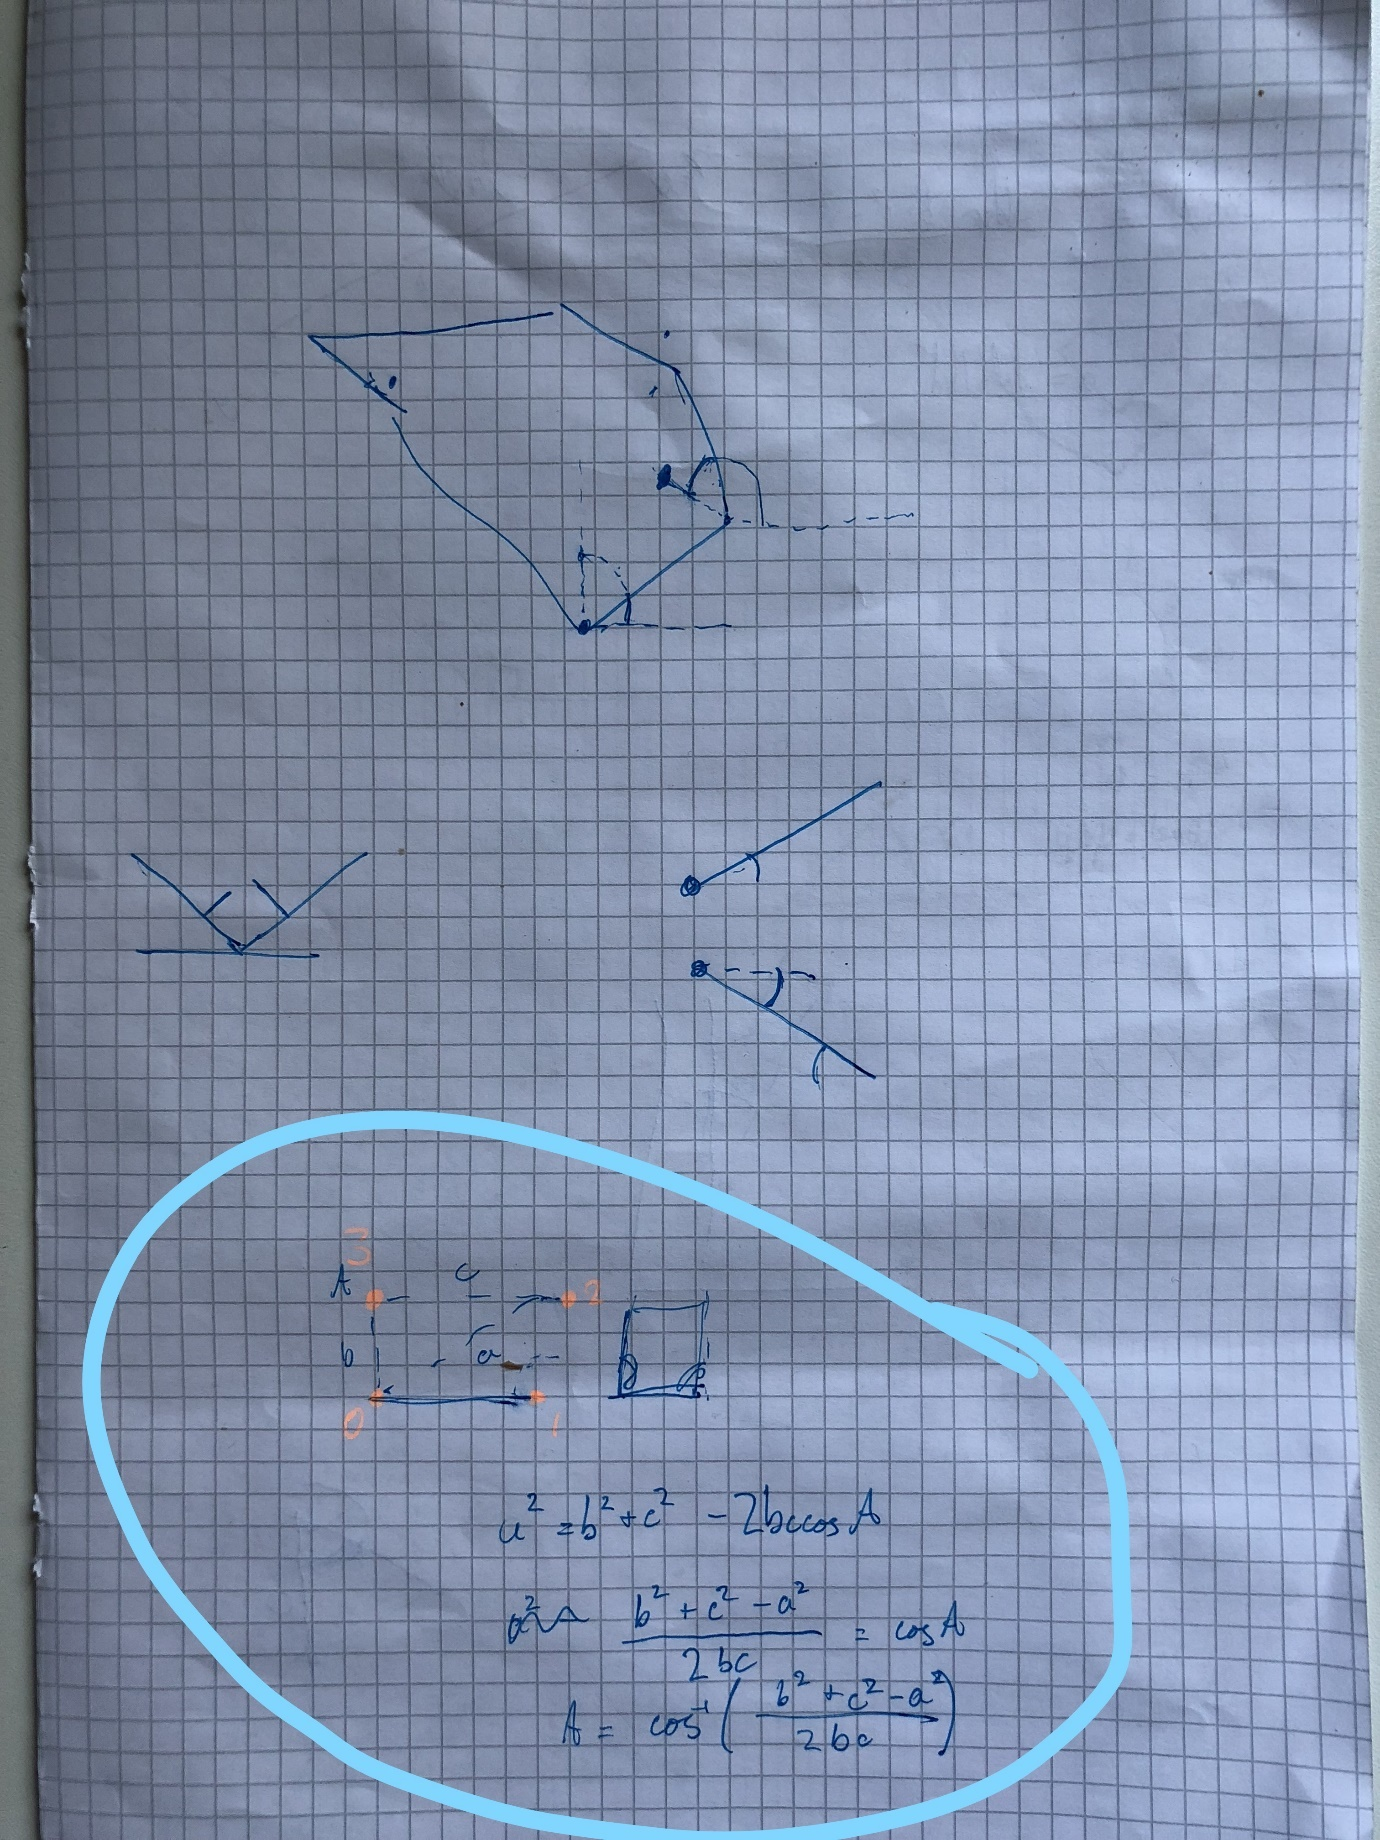 3
A c 2
b a
0 1
a² = b² + c² - 2bccosA
a² b² + c² - a² / 2bc = cosA
A = cos⁻¹( b² + c² - a² / 2bc )